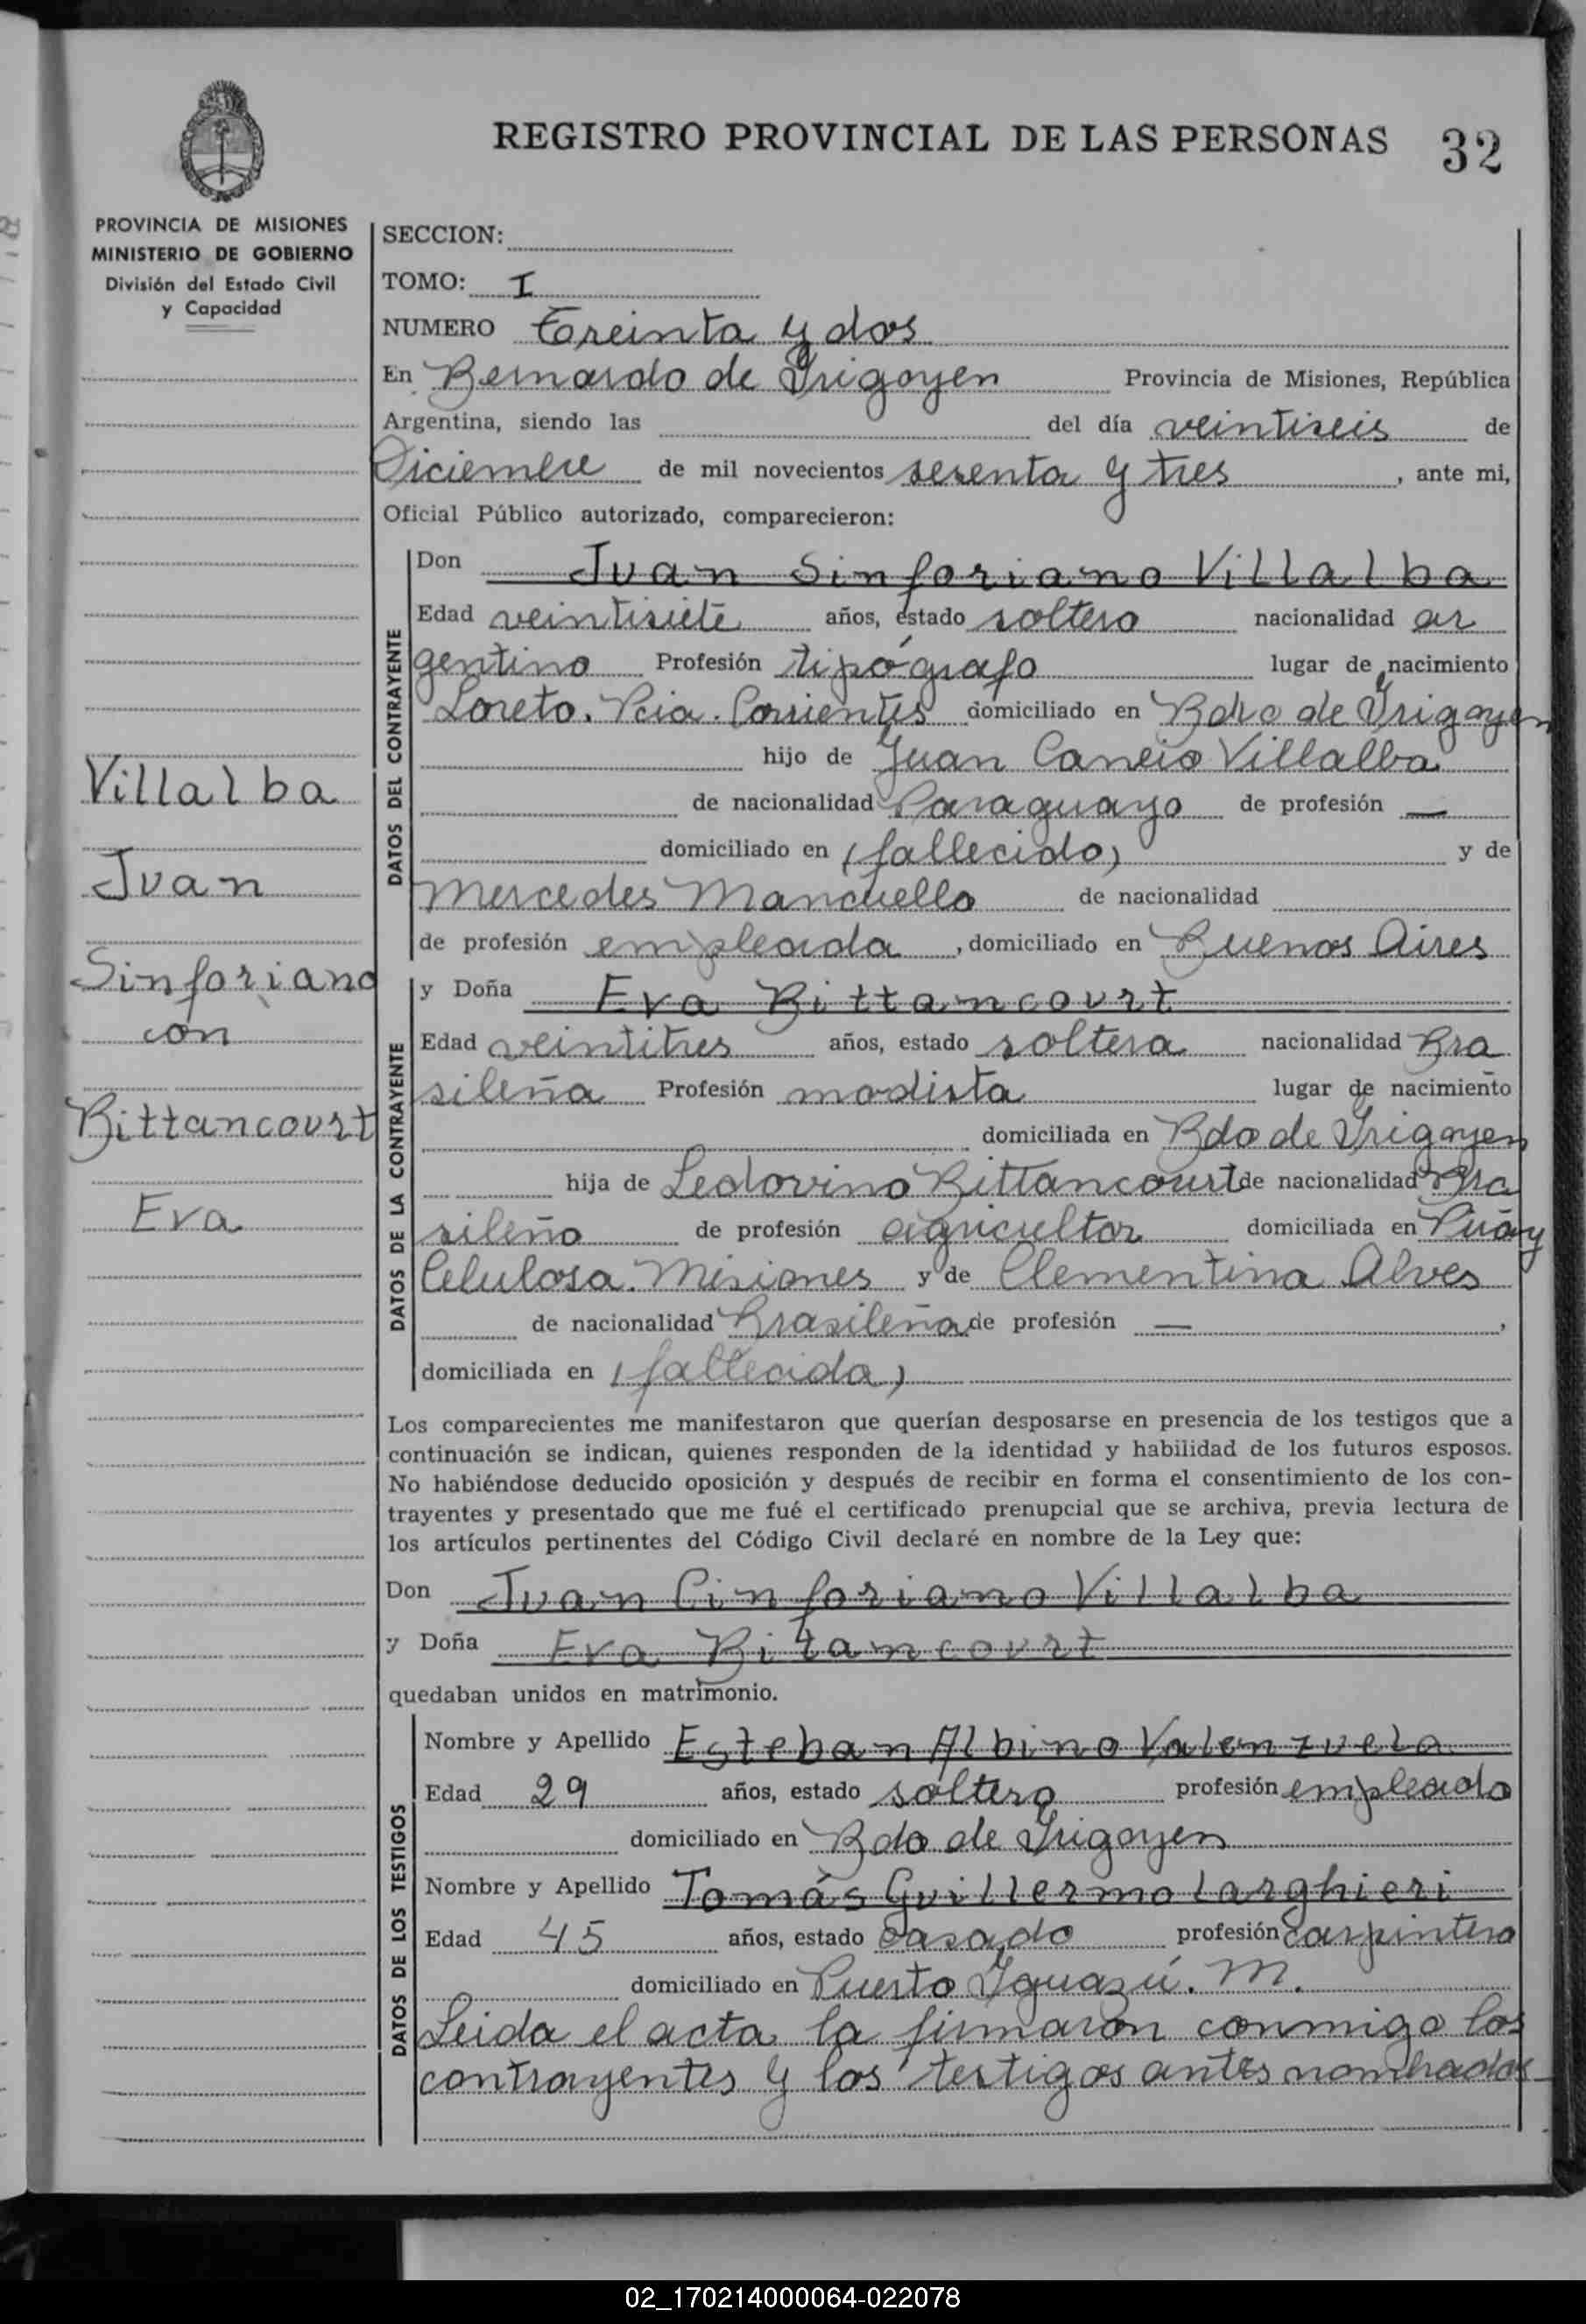 REGISTRO PROVINCIAL DE LAS PERSONAS 32
PROVINCIA DE MISIONES
MINISTERIO DE GOBIERNO
División del Estado Civil
y Capacidad
Villalba
Juan
Sinforiano
con
Bittancourt
Eva
SECCION:
TOMO: I
NUMERO Treinta y dos
En Bernardo de Irigoyen Provincia de Misiones, República
Argentina, siendo las del día veintiseis de
Diciembre de mil novecientos sesenta y tres, ante mi,
Oficial Público autorizado, comparecieron:
DATOS DEL CONTRAYENTE
Don Juan Sinforiano Villalba
Edad veintisiete años, estado soltero nacionalidad ar
gentino Profesión tipógrafo lugar de nacimiento
Loreto. Pcia. Corrientes domiciliado en Bdro de Irigoyen
hijo de Juan Villalba
de nacionalidad Paraguayo de profesión —
domiciliado en (fallecido) y de
Mercedes Mancuello de nacionalidad
de profesión empleada, domiciliado en Buenos Aires
DATOS DE LA CONTRAYENTE
y Doña Eva Bittancourt
Edad veintitres años, estado soltera nacionalidad Bra
sileña Profesión modista lugar de nacimiento
domiciliada en Bdo de Irigoyen
hija de Ledovino Bittancourt de nacionalidad Bra
sileño de profesión agricultor domiciliada en
Celulosa. Misiones y de Clementina Alves
de nacionalidad Brasileña de profesión —,
domiciliada en (fallecida)
Los comparecientes me manifestaron que querían desposarse en presencia de los testigos que a
continuación se indican, quienes responden de la identidad y habilidad de los futuros esposos.
No habiéndose deducido oposición y después de recibir en forma el consentimiento de los con-
trayentes y presentado que me fué el certificado prenupcial que se archiva, previa lectura de
los artículos pertinentes del Código Civil declaré en nombre de la Ley que:
Don Juan Cinforiano Villalba
y Doña Eva Bitancourt
quedaban unidos en matrimonio.
DATOS DE LOS TESTIGOS
Nombre y Apellido Esteban Albino Valenzuela
Edad 29 años, estado soltero profesión empleado
domiciliado en Bdo de Irigoyen
Nombre y Apellido Tomás Guillermo Larghieri
Edad 45 años, estado casado profesión carpintero
domiciliado en Puerto Iguazú. M.
Leida el acta la firmaron conmigo los
contrayentes y los testigos antes nombrados
02_170214000064-022078